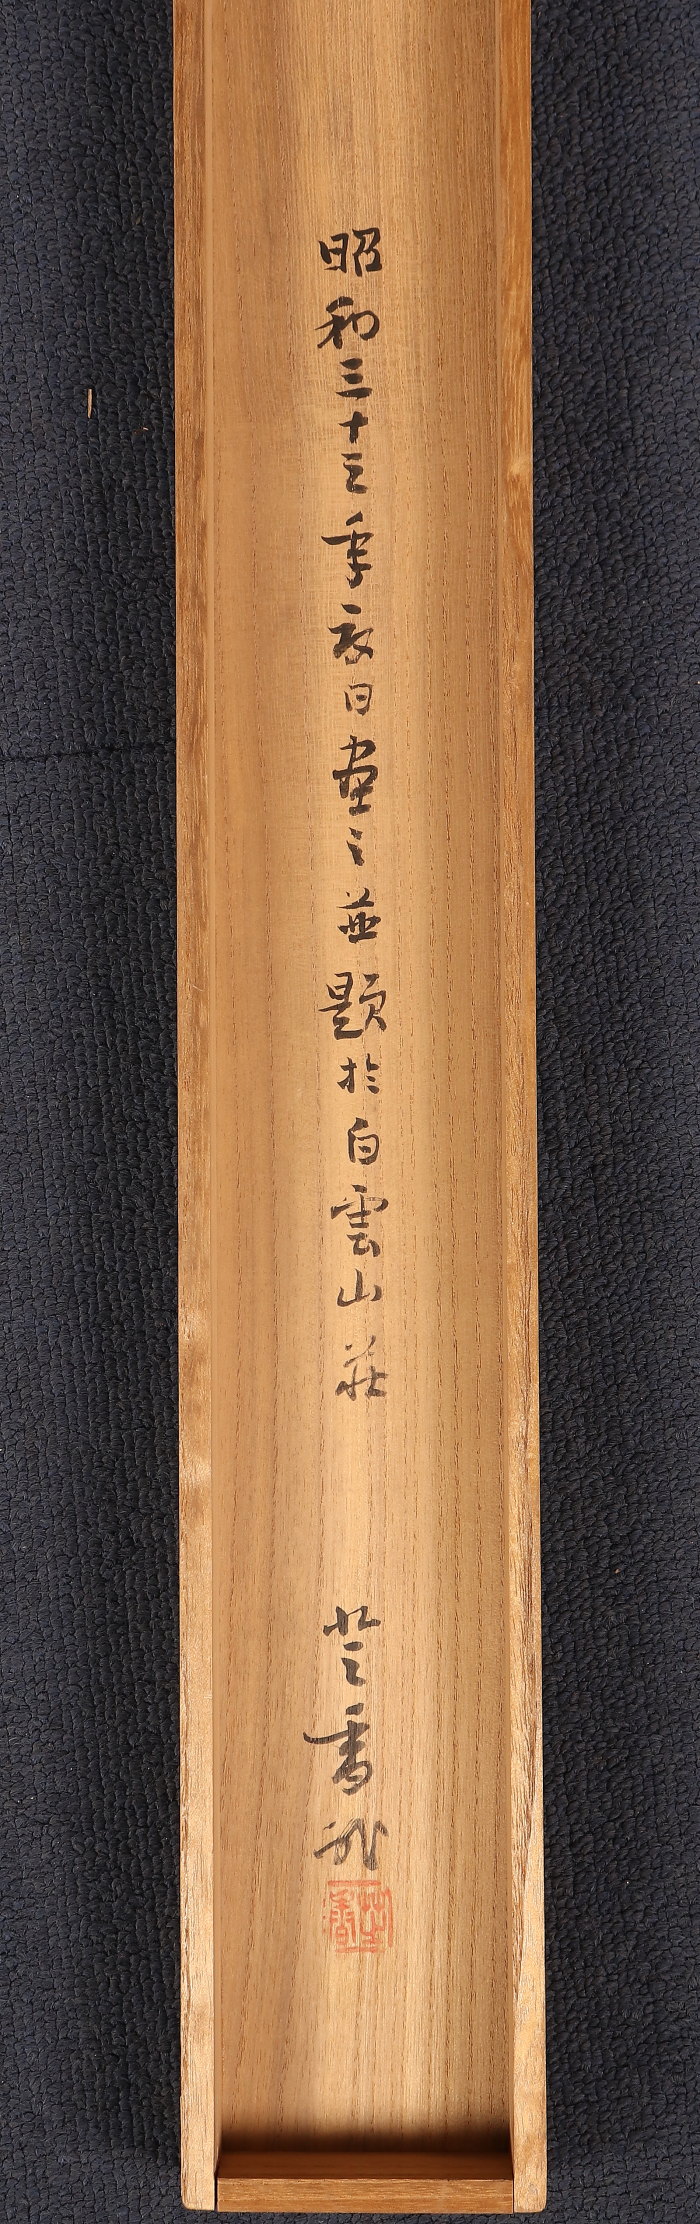 昭和三十三年夏日画之並題於白雲山荘
芝香